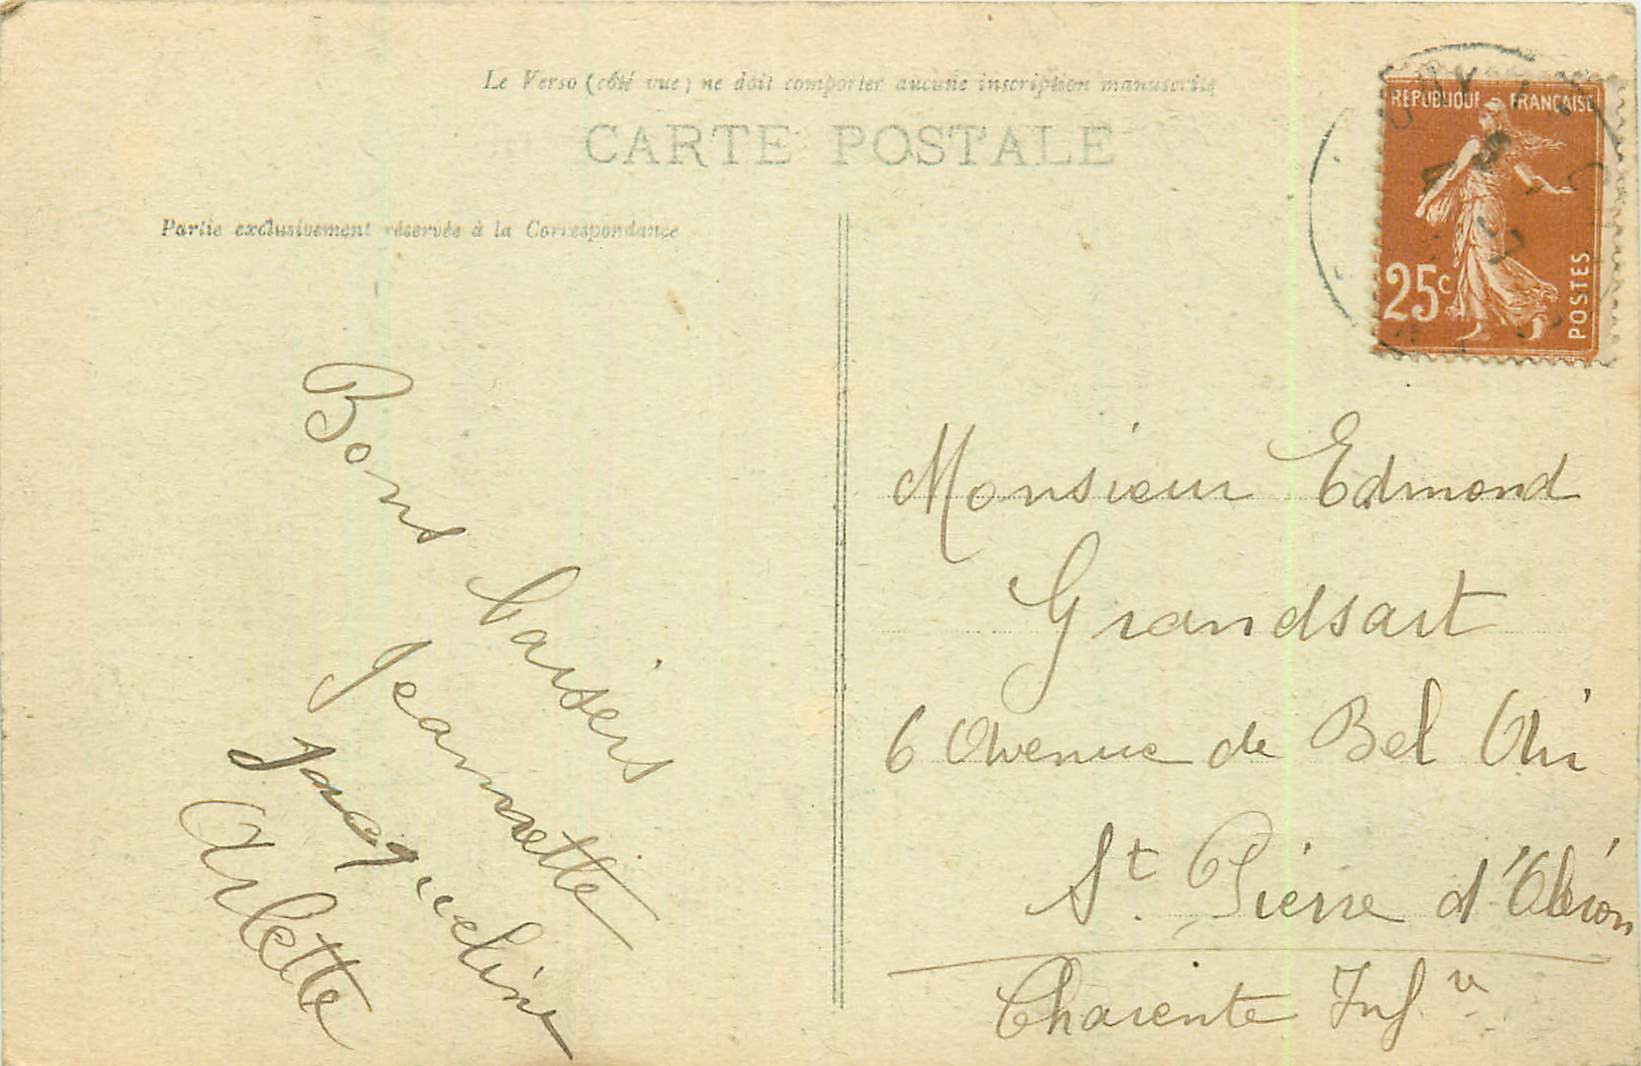 Le Verso (côté vue) ne doit comporter aucune inscription manuscrite
CARTE POSTALE
Partie exclusivement réservée à la Correspondance
REPUBLIQUE FRANÇAISE
25c
POSTES
Bons baisers
Jeannette
Jacqueline
Arlette
Monsieur Edmond
Grandsart
6 Avenue de Bel Air
St. Pierre d'Oléron
Charente Infre